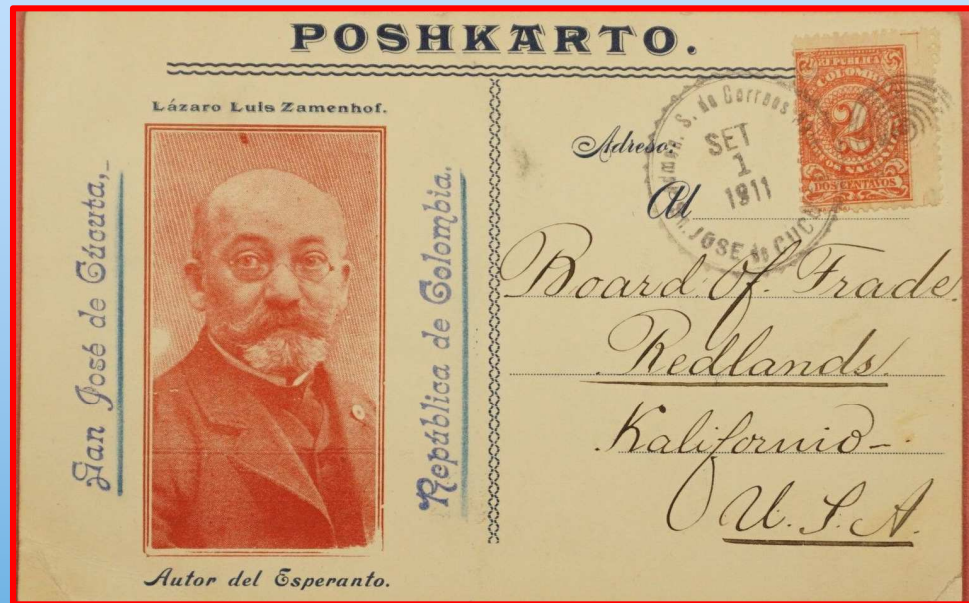 POSHKARTO.
Lázaro Luis Zamenhof.
San José de Cúcuta,
República de Colombia.
Autor del Esperanto.
Adreso:
Al
Board of Trade.
Redlands.
Kalifornio-
U. S. A.
S. de Correos
SET
1
1911
JOSE de CUCU
REPUBLICA
COLOMBIA
2
DOS CENTAVOS